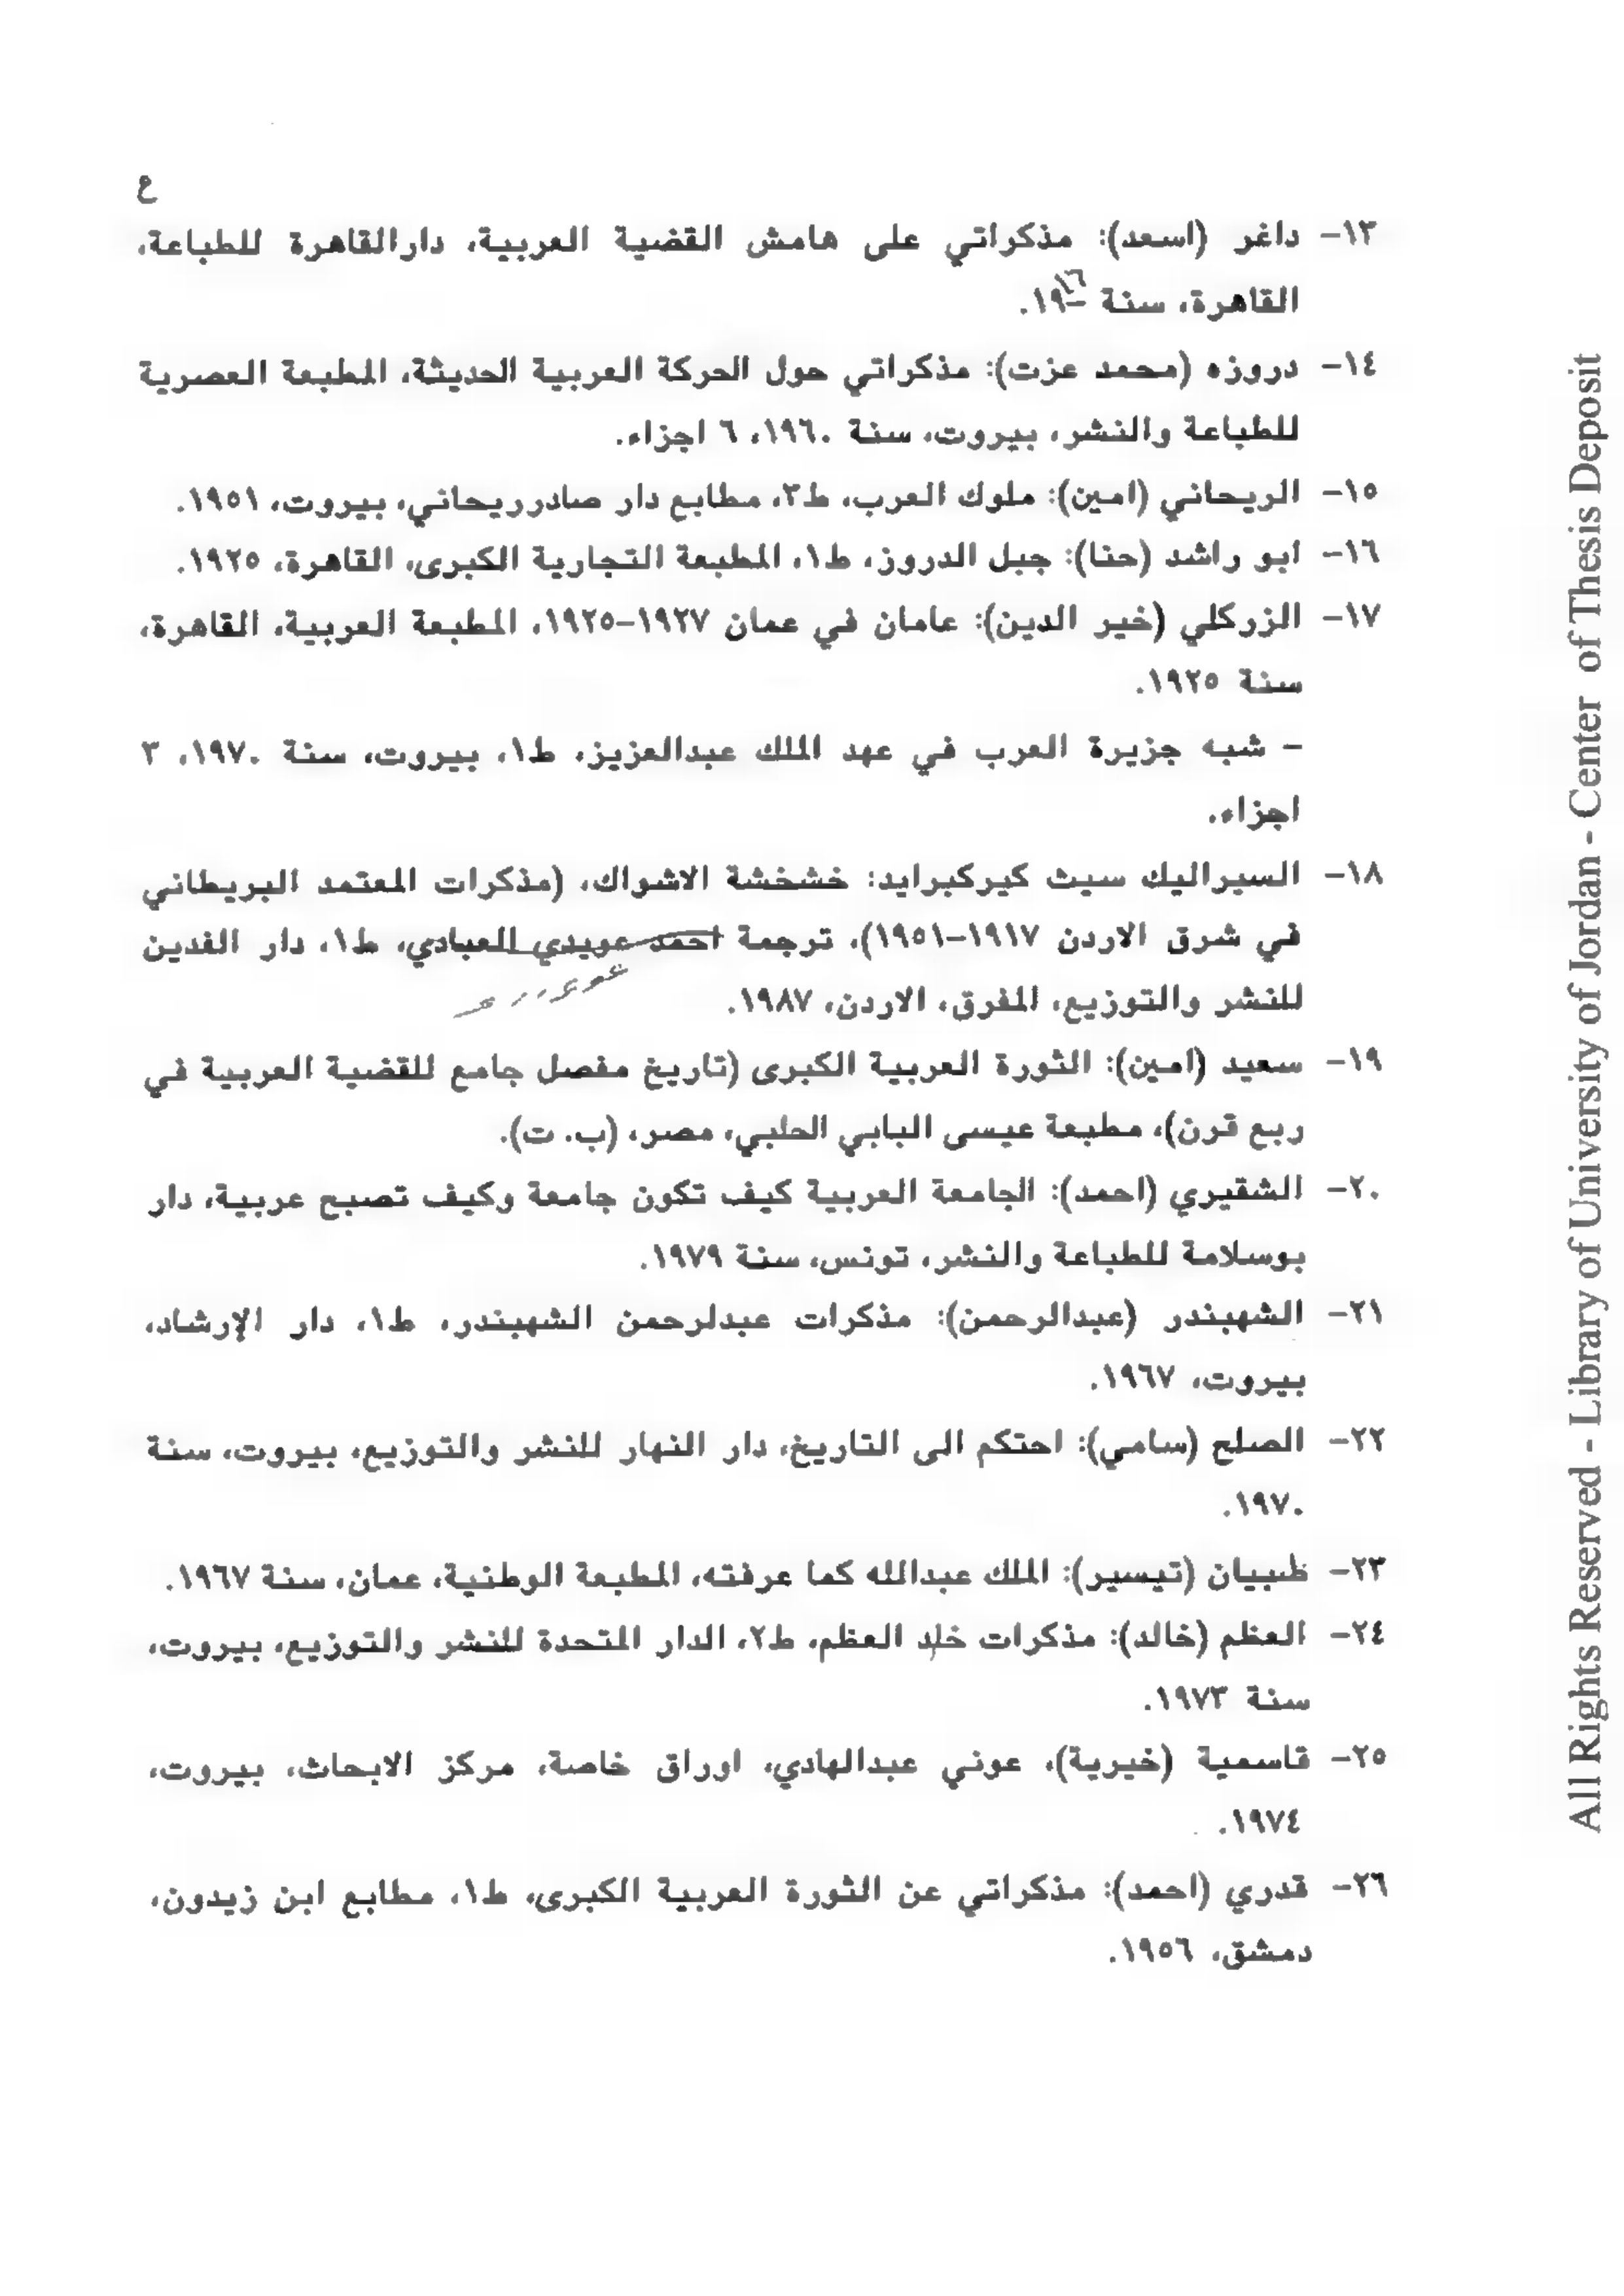 ع
١٣- داغر (اسعد): مذكراتي على هامش القضية العربية، دارالقاهرة للطباعة،
القاهرة، سنة -١٩.
١٤- دروزه (محمد عزت): مذكراتي حول الحركة العربية الحديثة، المطبعة العصرية
للطباعة والنشر، بيروت، سنة ١٩٦٠، ٦ اجزاء.
١٥- الريحاني (امين): ملوك العرب، ط٣، مطابع دار صادرريحاني، بيروت، ١٩٥١.
١٦- ابو راشد (حنا): جبل الدروز، ط١، المطبعة التجارية الكبرى، القاهرة، ١٩٢٥.
١٧- الزركلي (خير الدين): عامان في عمان ١٩٢٧-١٩٢٥، المطبعة العربية، القاهرة،
سنة ١٩٢٥.
- شبه جزيرة العرب في عهد الملك عبدالعزيز، ط١، بيروت، سنة ١٩٧٠، ٣
اجزاء.
١٨- السيراليك سيث كيركبرايد: خشخشة الاشواك، (مذكرات المعتمد البريطاني
في شرق الاردن ١٩١٧-١٩٥١)، ترجمة احمد عويدي العبادي، ط١، دار الفدين
للنشر والتوزيع، المفرق، الاردن، ١٩٨٧.
١٩- سعيد (امين): الثورة العربية الكبرى (تاريخ مفصل جامع للقضية العربية في
ربع قرن)، مطبعة عيسى البابي الحلبي، مصر، (ب. ت).
٢٠- الشقيري (احمد): الجامعة العربية كيف تكون جامعة وكيف تصبح عربية، دار
بوسلامة للطباعة والنشر، تونس، سنة ١٩٧٩.
٢١- الشهبندر (عبدالرحمن): مذكرات عبدلرحمن الشهبندر، ط١، دار الإرشاد،
بيروت، ١٩٦٧.
٢٢- الصلح (سامي): احتكم الى التاريخ، دار النهار للنشر والتوزيع، بيروت، سنة
١٩٧٠.
٢٣- ظبيان (تيسير): الملك عبدالله كما عرفته، المطبعة الوطنية، عمان، سنة ١٩٦٧.
٢٤- العظم (خالد): مذكرات خلد العظم، ط٢، الدار المتحدة للنشر والتوزيع، بيروت،
سنة ١٩٧٣.
٢٥- قاسمية (خيرية)، عوني عبدالهادي، اوراق خاصة، مركز الابحاث، بيروت،
١٩٧٤.
٢٦- قدري (احمد): مذكراتي عن الثورة العربية الكبرى، ط١، مطابع ابن زيدون،
دمشق، ١٩٥٦.
All Rights Reserved - Library of University of Jordan - Center of Thesis Deposit